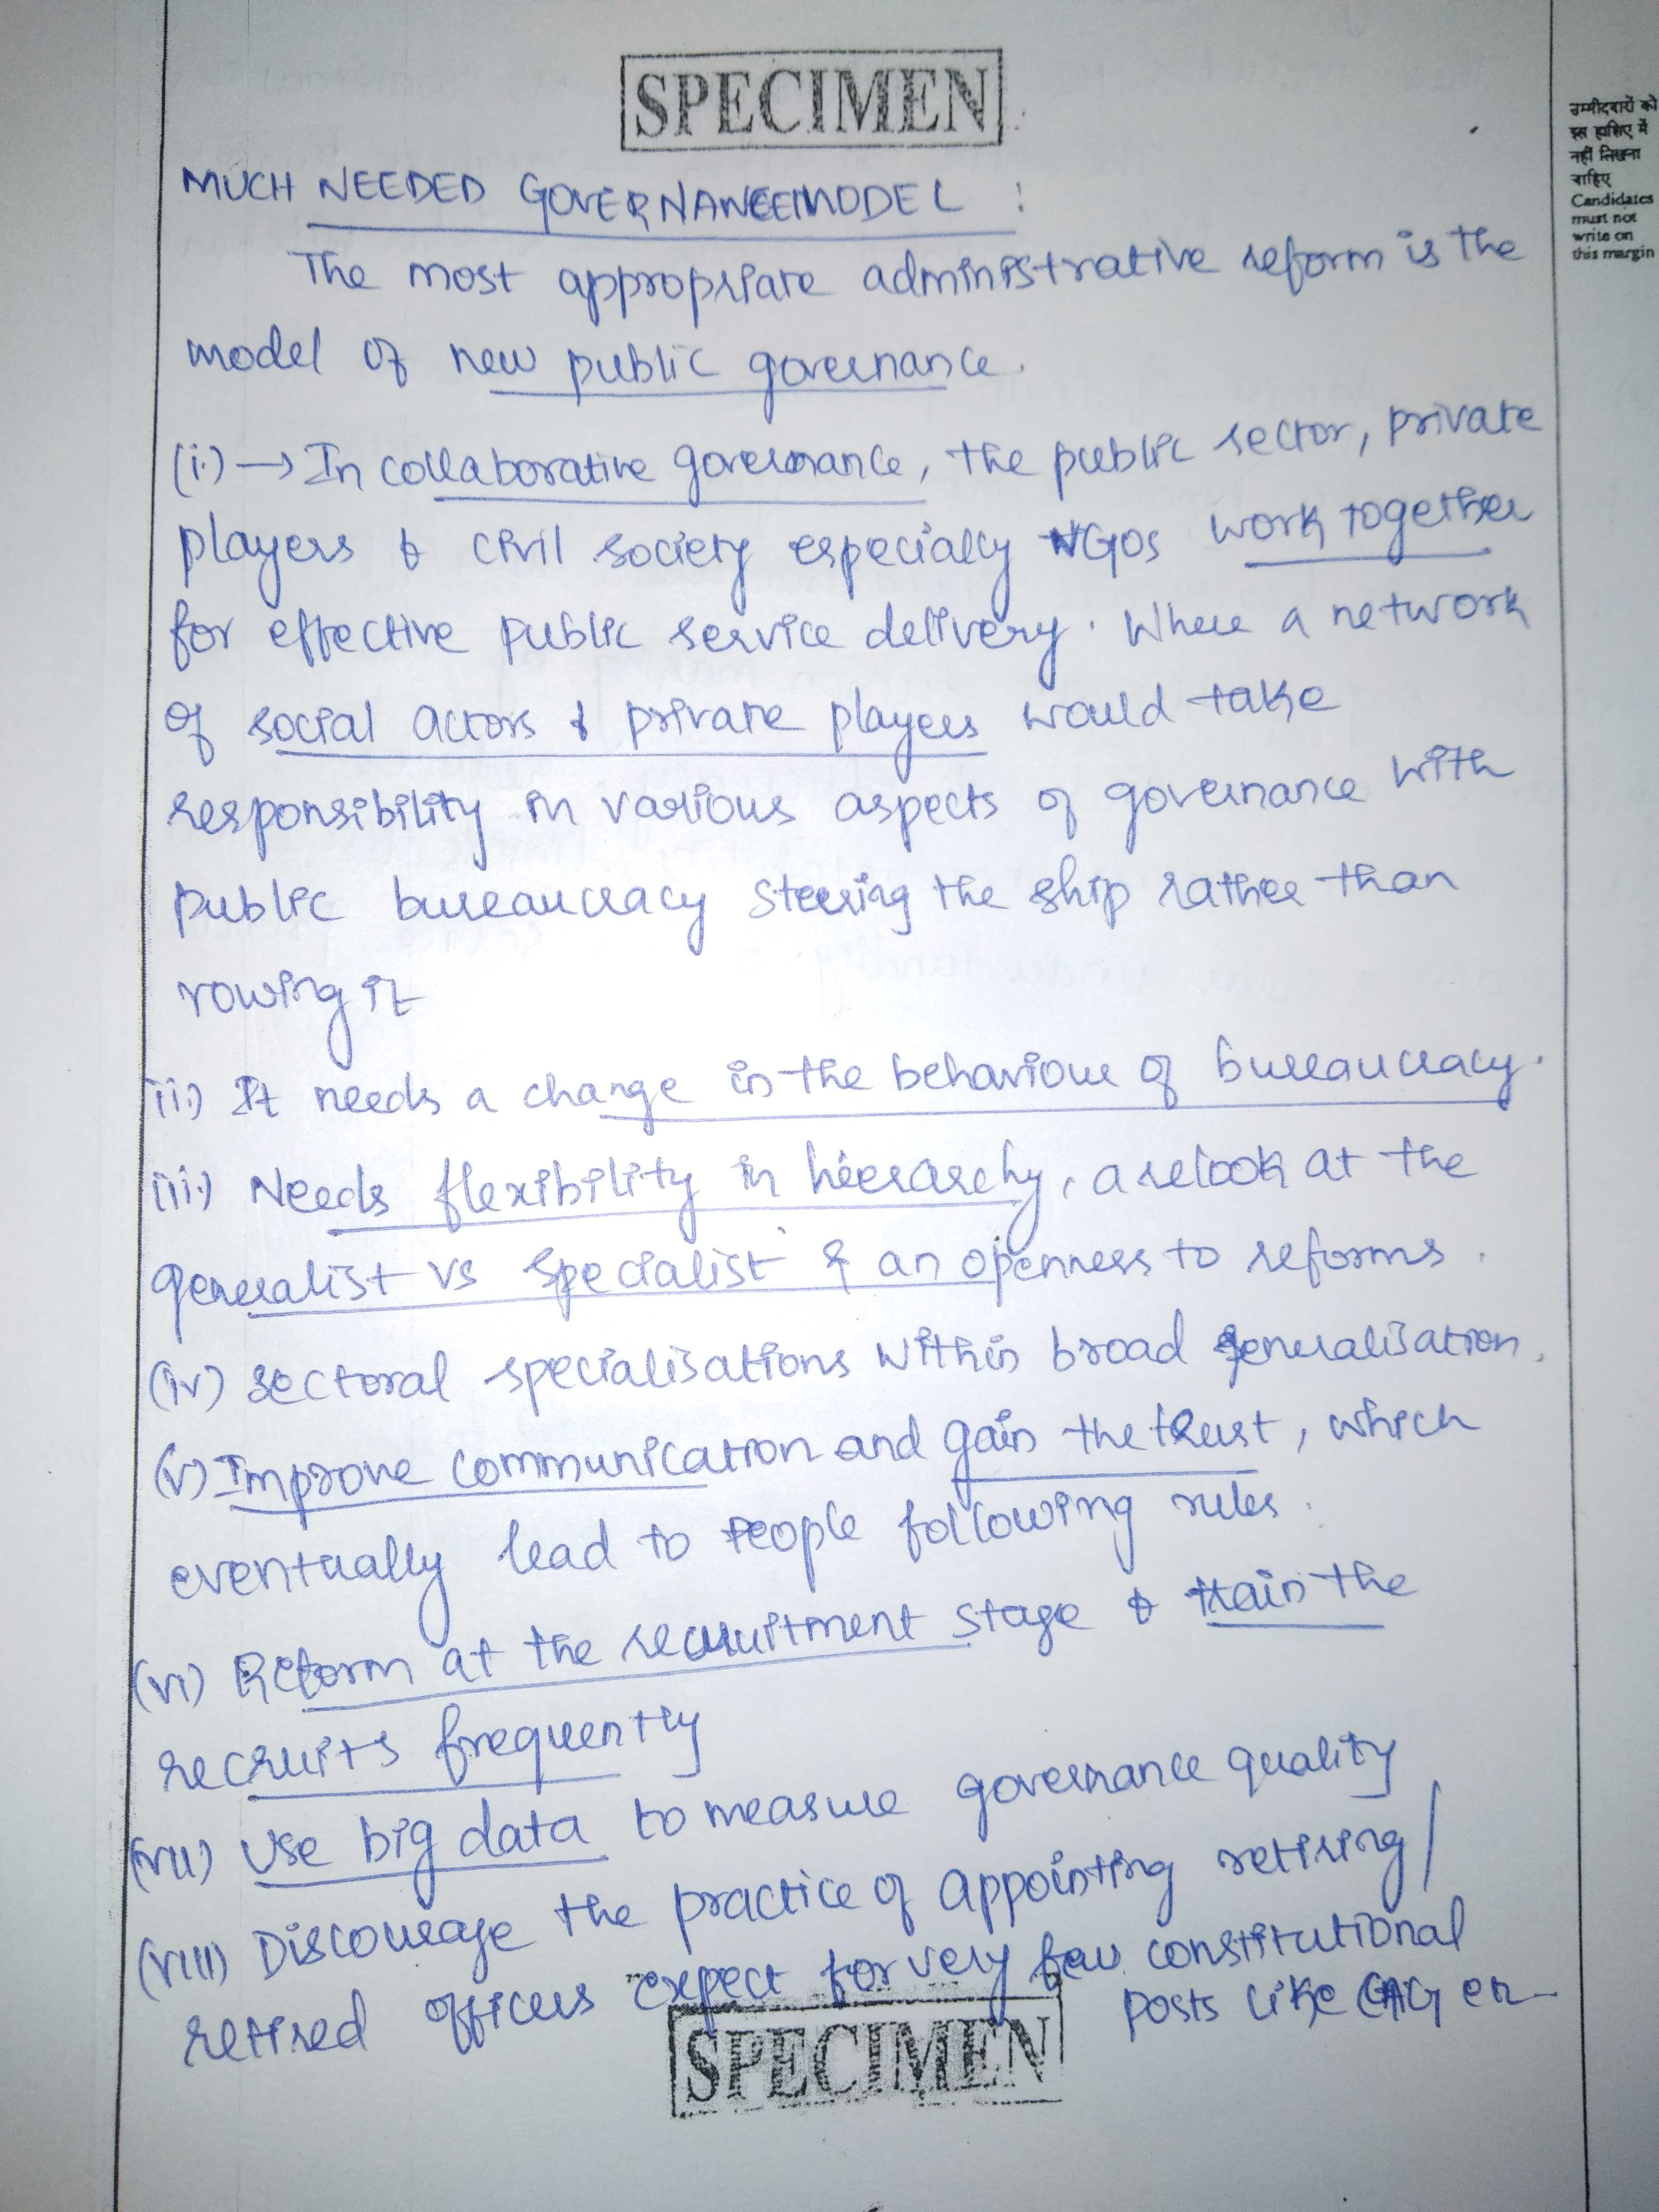 SPECIMEN
उम्मीदवारों को
इस हाशिए में
नहीं लिखना
चाहिए
Candidates
must not
write on
this margin
MUCH NEEDED GOVERNANCE MODEL :
The most appropriate administrative reform is the
model of new public governance.
(i) → In collaborative governance, the public sector, private
players & civil society especially NGOs work together
for effective public service delivery. Where a network
of social actors & private players would take
responsibility in various aspects of governance with
public bureaucracy steering the ship rather than
rowing it
ii) It needs a change in the behaviour of bureaucracy.
iii) Needs flexibility in hierarchy, a relook at the
generalist vs specialist & an openness to reforms.
(iv) sectoral specialisations within broad generalisation.
(v) Improve communication and gain the trust, which
eventually lead to people following rules.
(vi) Reform at the recruitment stage & train the
recruits frequently
(vii) Use big data to measure governance quality
(viii) Discourage the practice of appointing retiring/
retired officers expect for very few constitutional
posts like CAG
SPECIMEN